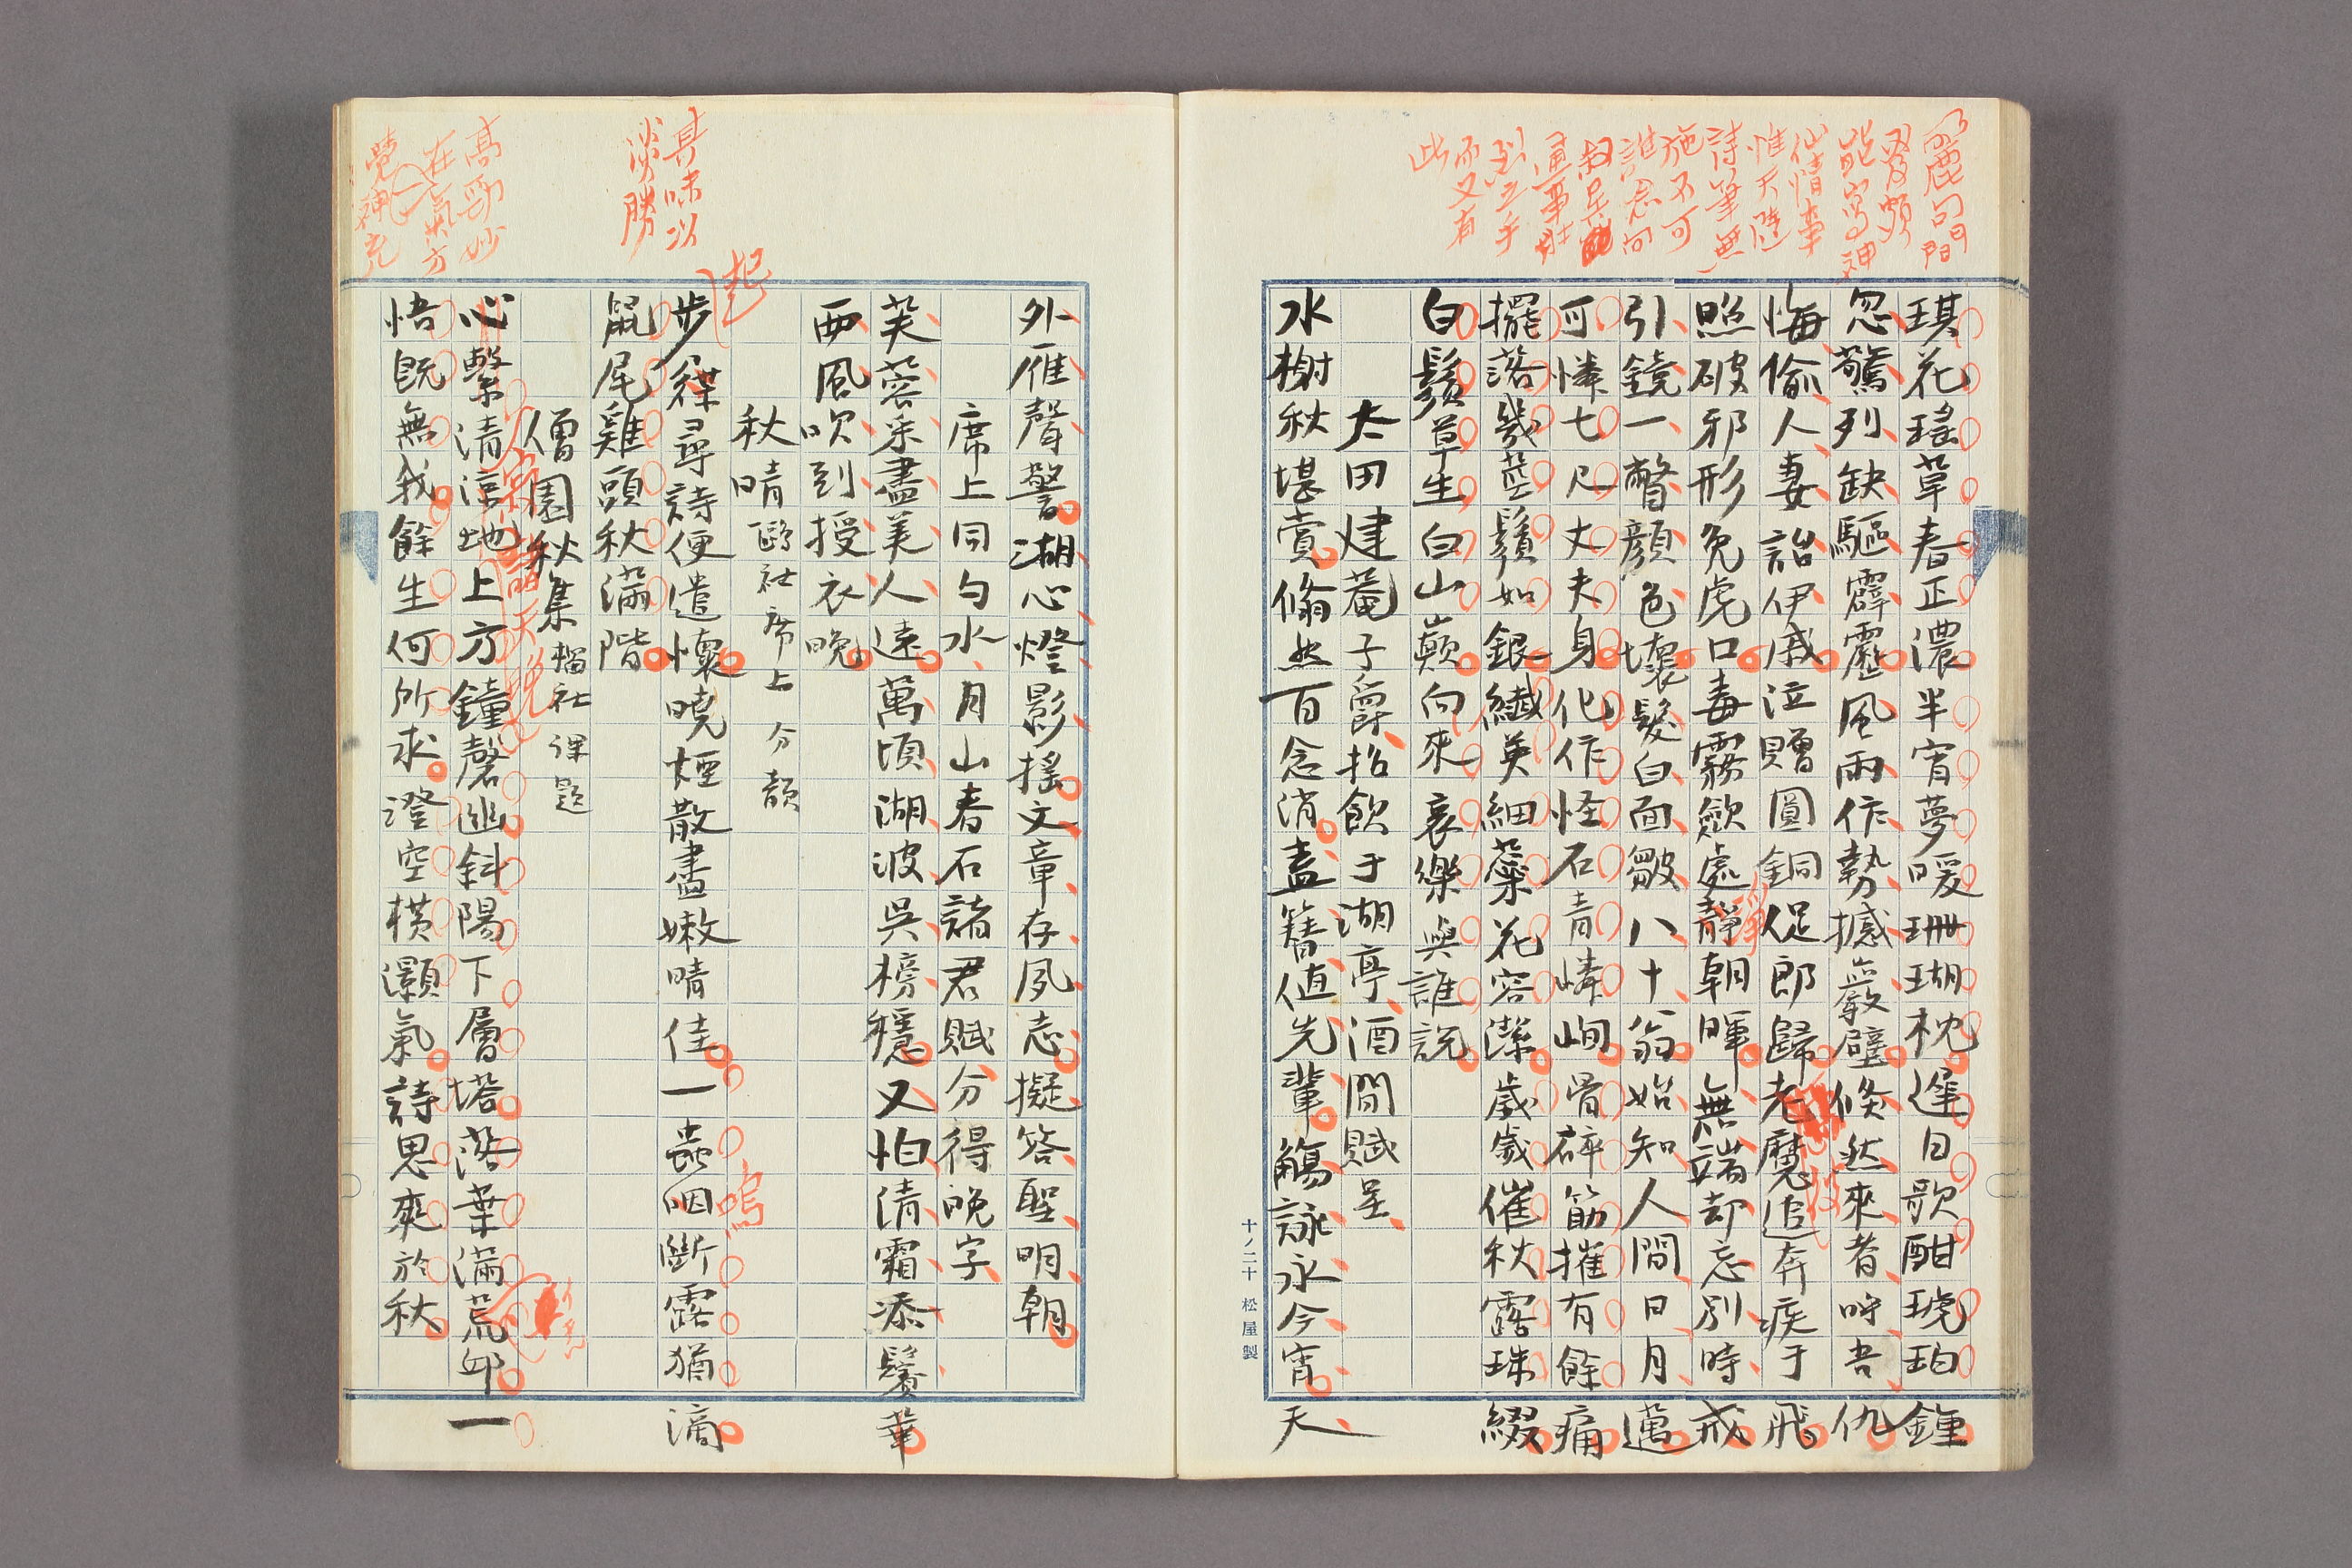 琪花瑤草春正濃半宵夢暖珊瑚枕遲日歌酣琥珀鍾
忽驚列缺驅霹靂風雨作勢撼巖壁倐然來者呼吾仇
悔偷人妻詒伊戚泣贈圓銅促郎歸老魔追奔疾于飛
照破邪形免虎口毒霧歛處靜朝暉無端却忘別時戒
引鏡一瞥顏色壞髮白面皺八十翁始知人間日月邁
可憐七尺丈夫身化作怪石青嶙峋骨碎筋摧有餘痛
擺落幾莖鬚如銀纖英細蘂花容潔歲歲催秋露珠綴
白鬚草生白山巔向來哀樂與誰説
太田建菴子爵招飲于湖亭酒間賦呈
水榭秋堪賞翛然百念消盍簪値先輩觴詠永今宵天
十ノ二十 松屋製
外雁聲警湖心燈影搖文章存夙志擬答聖明朝
席上同勻水月山春石諸君賦分得晚字
芙蓉采盡美人遠萬頃湖波呉榜穩又怕清霜添鬢華
西風吹到授衣晚
秋晴 鷗社席上 分韻
步屧尋詩便遣懷曉煙散盡嫩晴佳一蟲咽斷露猶滴
鼠尾雞頭秋滿階
僧園秋集 榴社課題
心繫清涼地上方鐘磬幽斜陽下層塔落葉滿荒邱一
悟既無我餘生何所求澄空橫灝氣詩思爽於秋
具味以
淡勝
起
高勁妙
在氣方
鳴